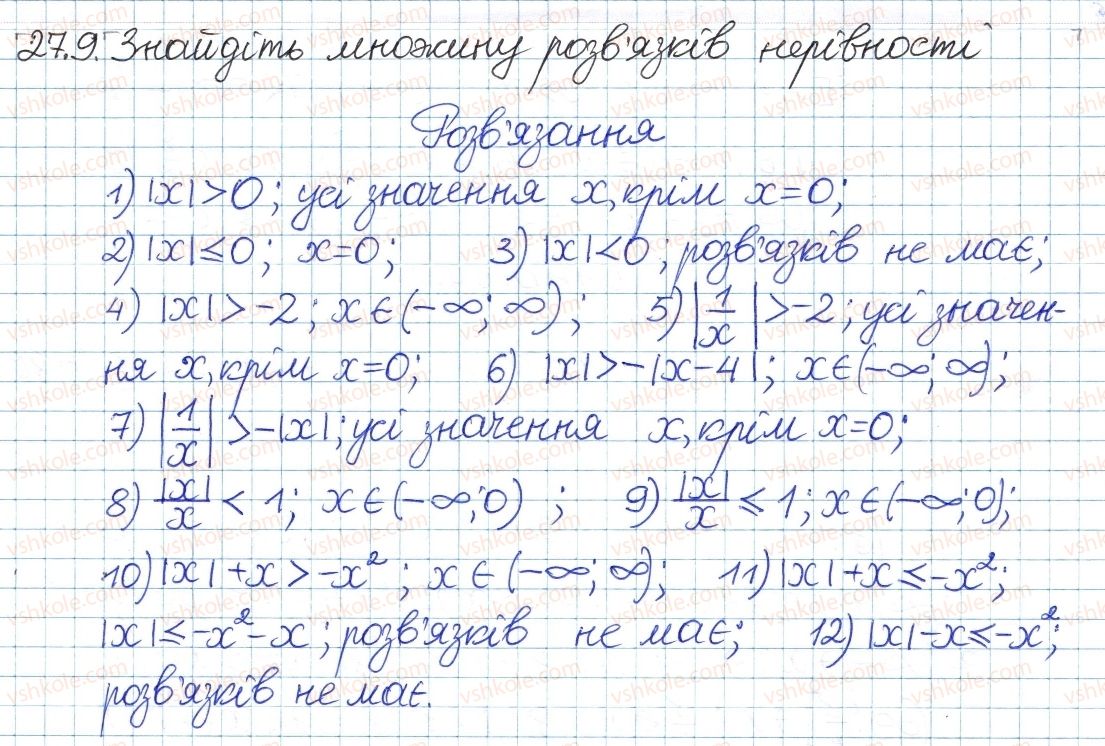 27.9. Знайдіть множину розв'язків нерівності
Розв'язання
1) |x|>0; усі значення x, крім x=0;
2) |x|≤0; x=0; 3) |x|<0; розв'язків не має;
4) |x|>-2; x∈(-∞; ∞); 5) |1/x|>-2; усі значен-
ня x, крім x=0; 6) |x|>-|x-4|; x∈(-∞; ∞);
7) |1/x|>-|x|; усі значення x, крім x=0;
8) |x|/x < 1; x∈(-∞; 0) ; 9) |x|/x ≤ 1; x∈(-∞; 0);
10) |x|+x>-x²; x∈(-∞; ∞); 11) |x|+x≤-x²;
|x|≤-x²-x; розв'язків не має; 12) |x|-x≤-x²;
розв'язків не має.